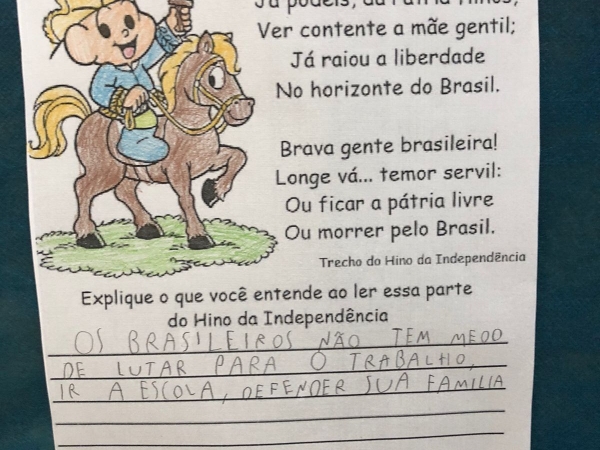 Já podeis, da Pátria filhos,
Ver contente a mãe gentil;
Já raiou a liberdade
No horizonte do Brasil.
Brava gente brasileira!
Longe vá... temor servil:
Ou ficar a pátria livre
Ou morrer pelo Brasil.
Trecho do Hino da Independência
Explique o que você entende ao ler essa parte
do Hino da Independência
OS BRASILEIROS NÃO TEM MEDO
DE LUTAR PARA O TRABALHO,
IR A ESCOLA, DEFENDER SUA FAMILIA